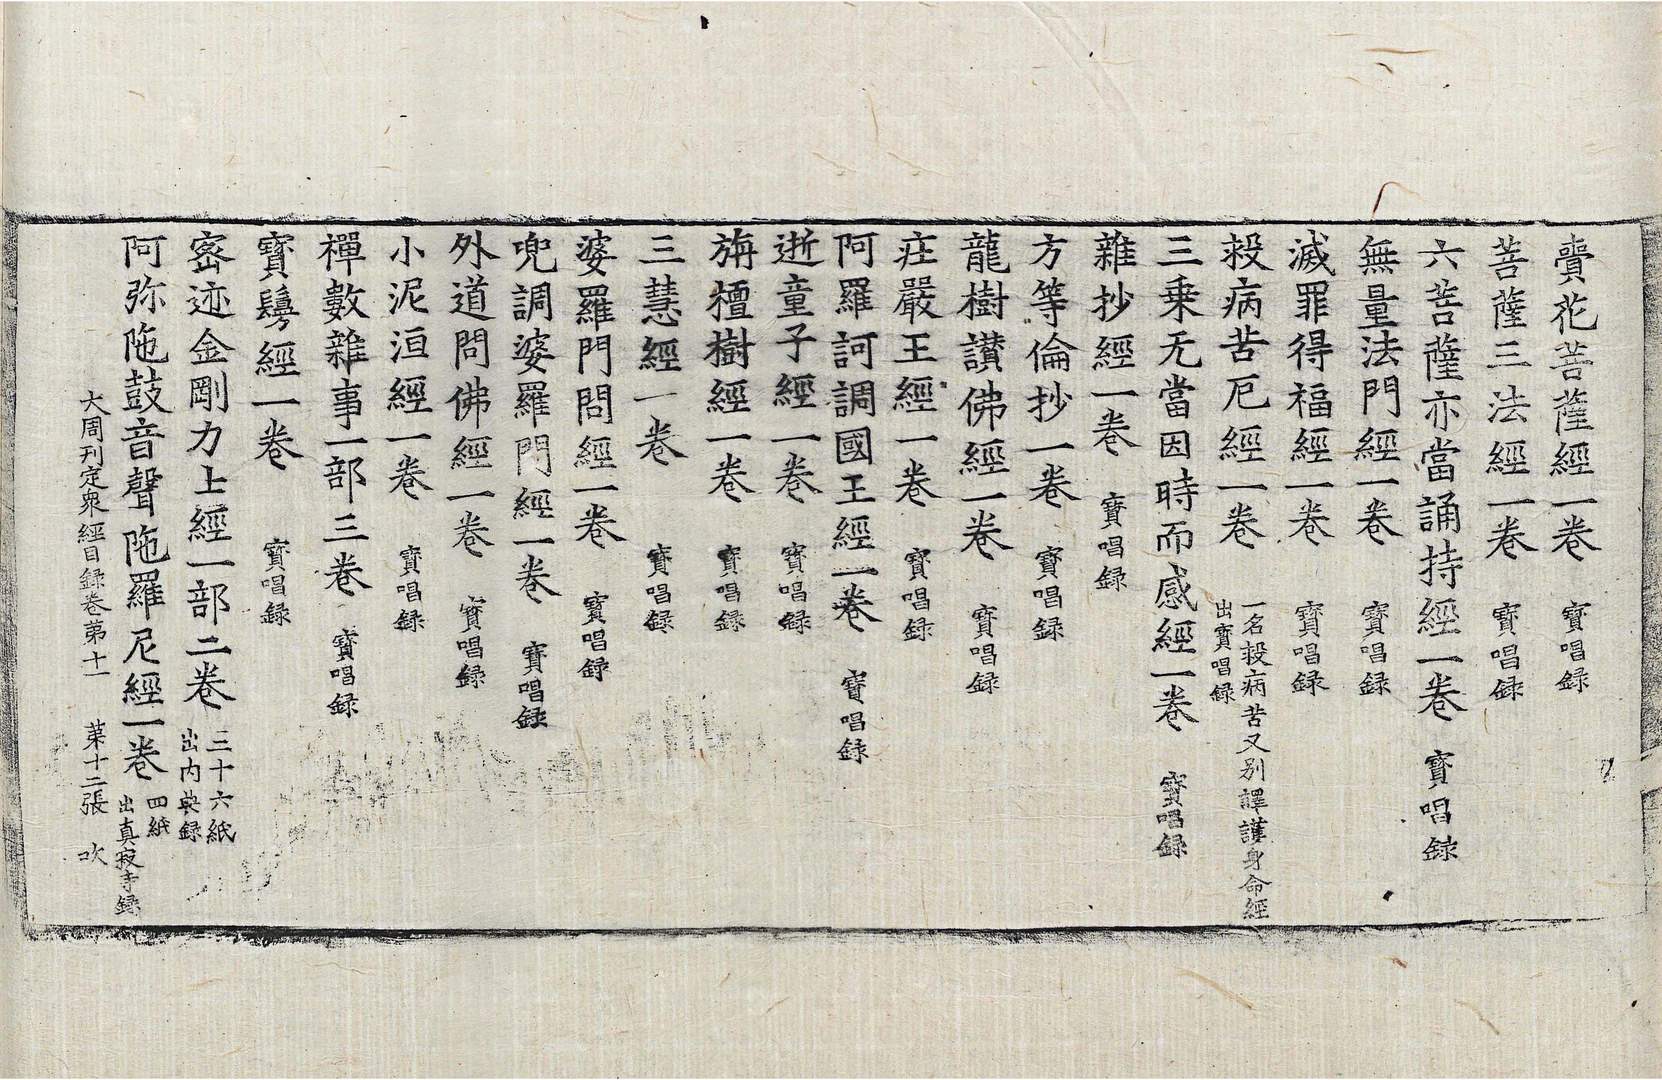 賷花菩薩經一卷 寳唱録
菩薩三法經一卷 寳唱録
六菩薩亦當誦持經一卷 寳唱録
無量法門經一卷 寳唱録
滅罪得福經一卷 寳唱録
殺病苦厄經一卷 一名殺病苦又别譯護身命經 出寳唱録
三乗无當因時而感經一卷 寳唱録
雜抄經一卷 寳唱録
方等倫抄一卷 寳唱録
龍樹讃佛經一卷 寳唱録
庄嚴王經一卷 寳唱録
阿羅訶調國王經一卷 寳唱録
逝童子經一卷 寳唱録
旃檀樹經一卷 寳唱録
三慧經一卷 寳唱録
婆羅門問經一卷 寳唱録
兜調婆羅門經一卷 寳唱録
外道問佛經一卷 寳唱録
小泥洹經一卷 寳唱録
禪數雜事一部三卷 寳唱録
寳鬘經一卷 寳唱録
宻迹金剛力士經一部二卷 三十六紙 出内典録
阿弥陁鼓音聲陁羅尼經一卷 四紙 出真寂寺録
大周刊定衆經目録卷苐十一 苐十二張 吹